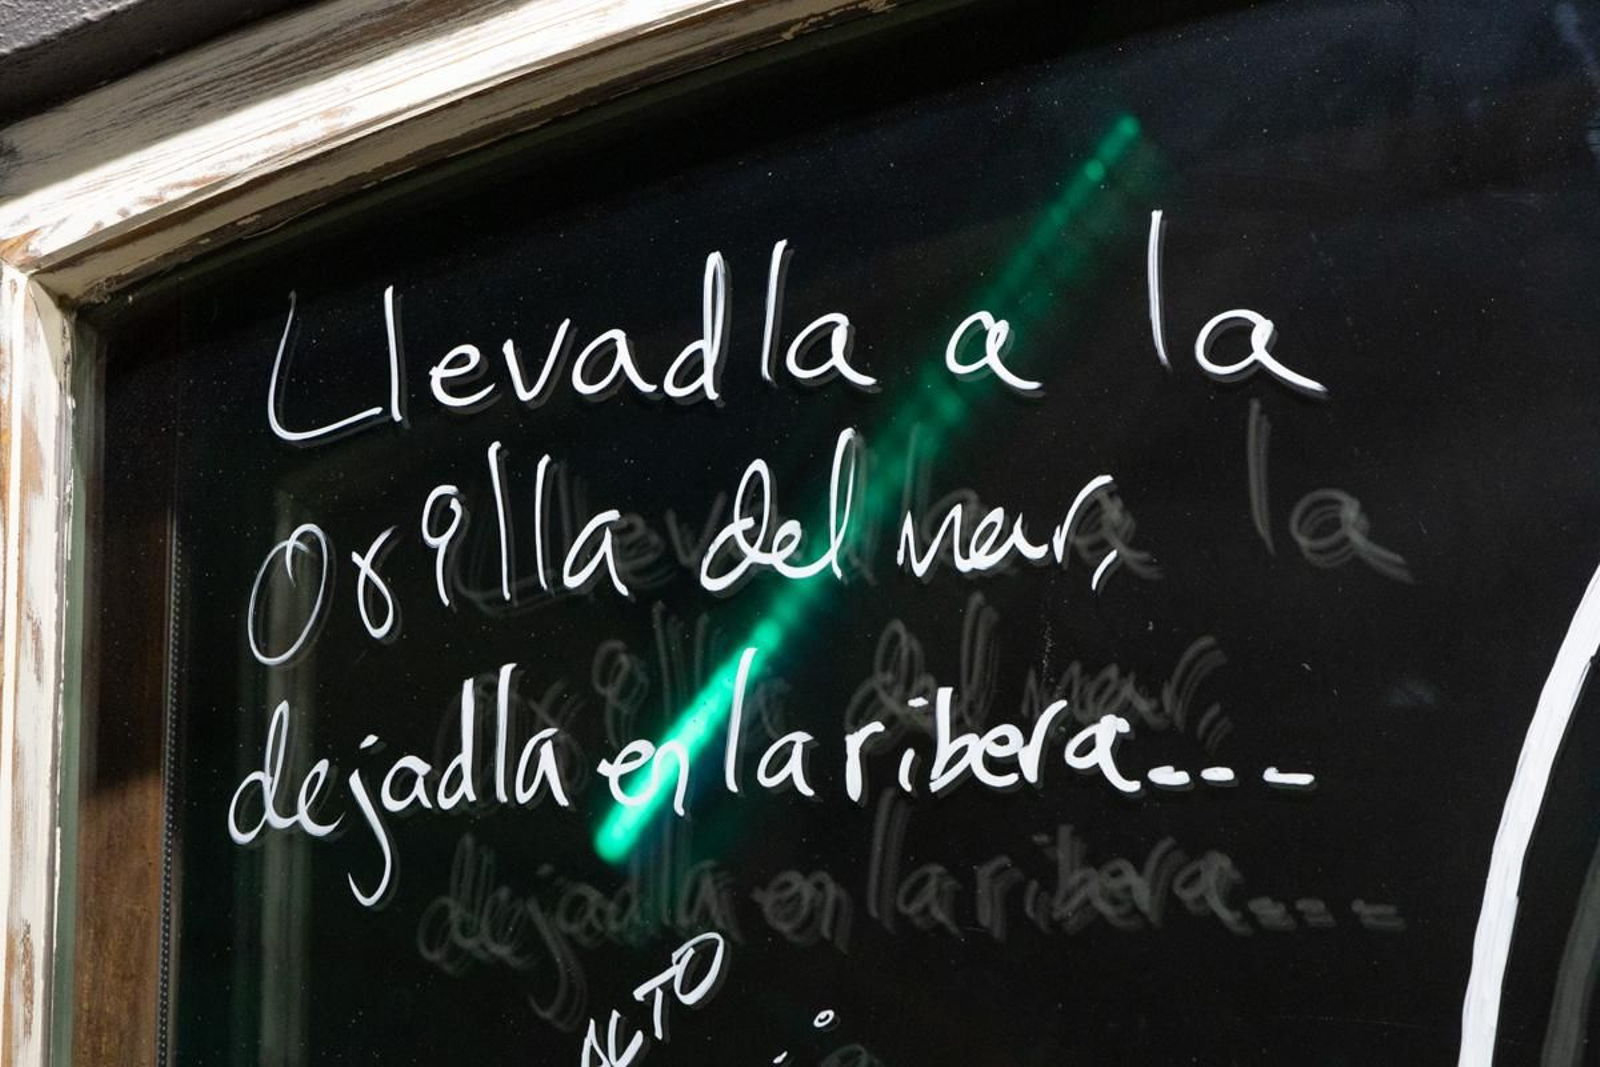 Llevadla a la
Orilla del mar,
dejadla en la ribera...